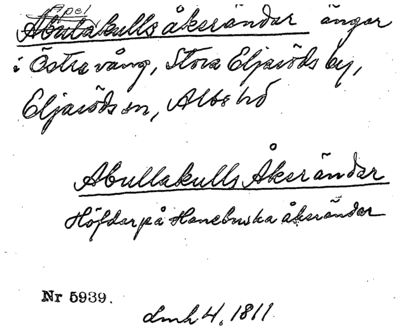 Apel
Abulakulls åkerändar ängar
i Östra vång, Stora Eljaröds by,
Eljaröds sn, Albo hd
Abullakulls Åkerändar
Höfdar på Hanebuska åkerändar
Nr 5939.
dmh 4, 1811